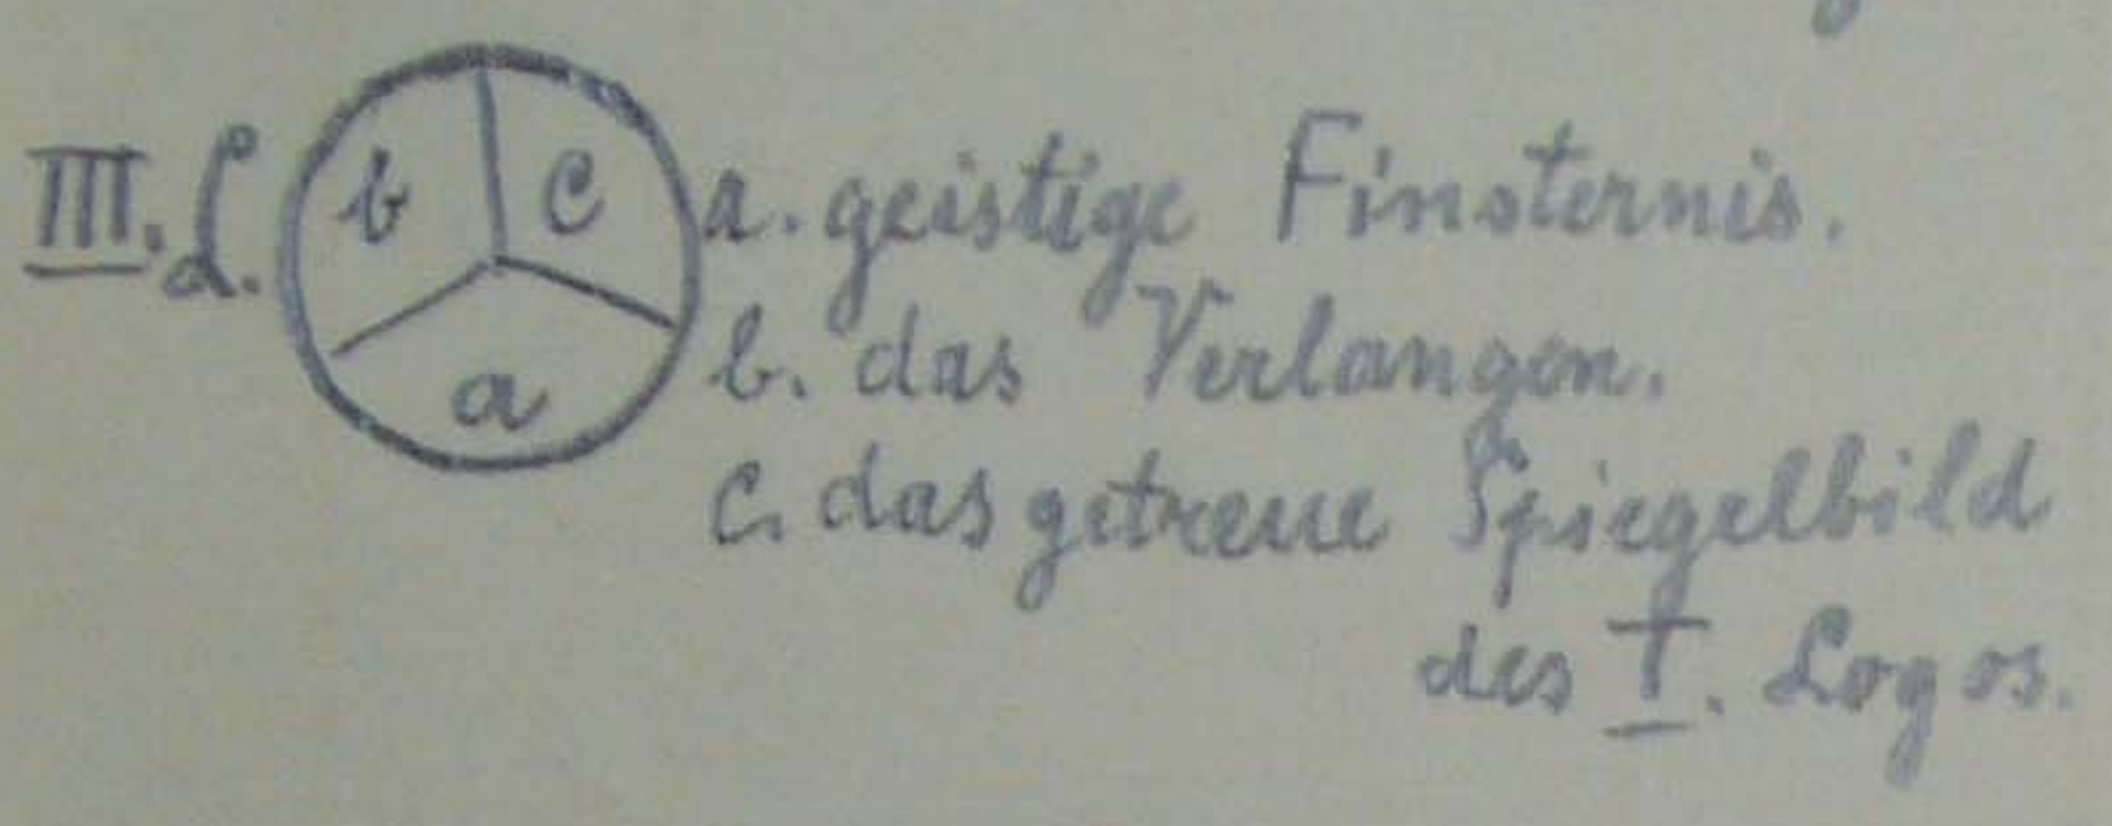 III. L.
b c
a
a. geistige Finsternis.
b. das Verlangen.
c. das getreue Spiegelbild
des I. Logos.